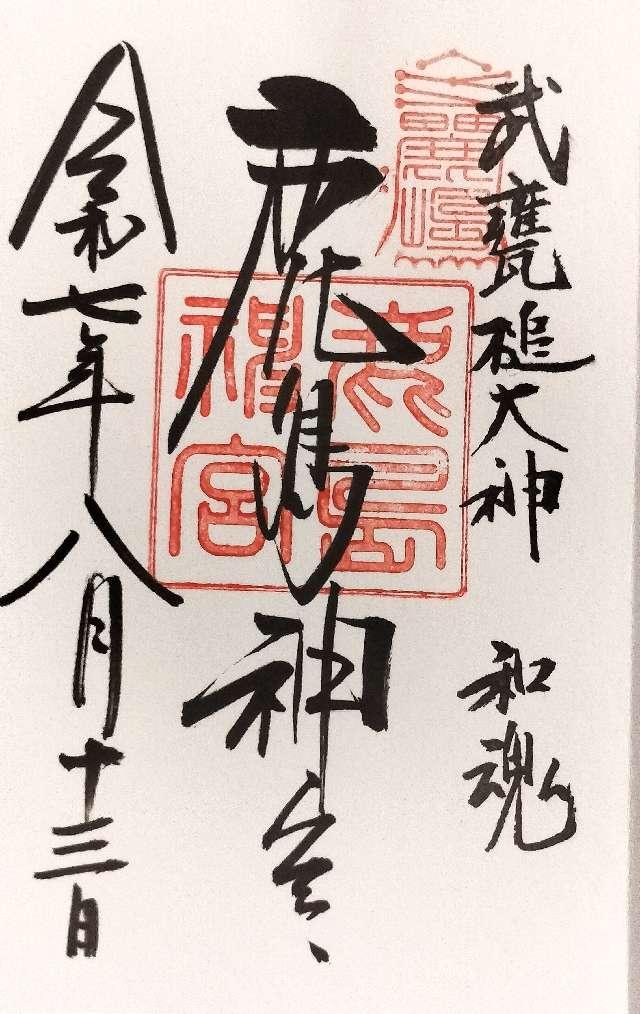 武甕槌大神 和魂
鹿島神宮
鹿島神宮
令和七年八月十三日